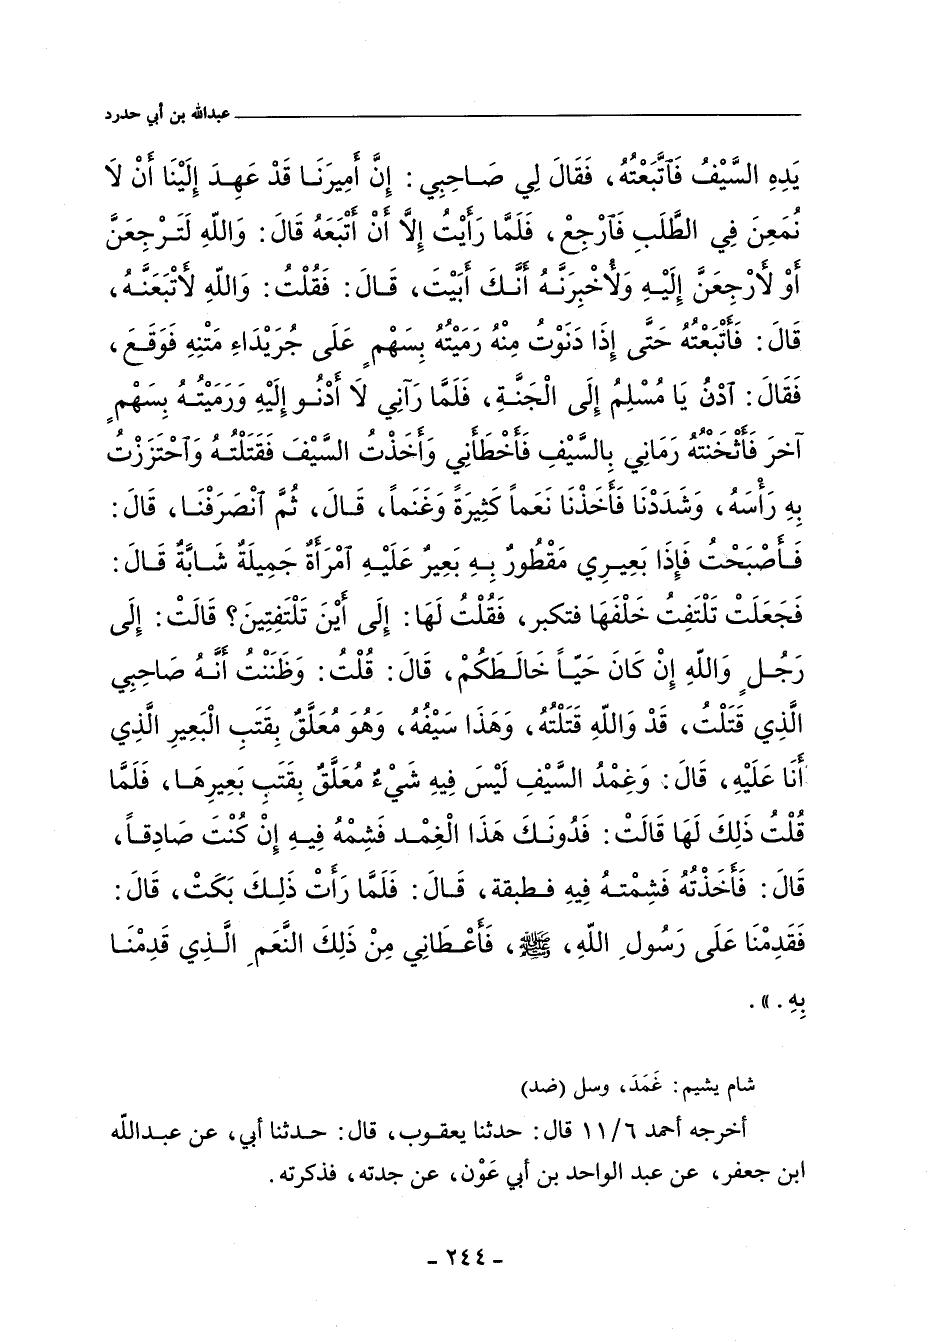 عبدالله بن أبي حدرد
يَدِهِ السَّيْفُ فَاتَّبَعْتُهُ، فَقَالَ لِي صَاحِبِي: إِنَّ أَمِيرَنَا قَدْ عَهِدَ إِلَيْنَا أَنْ لَا
نُمَعِنَ فِي الطَّلَبِ فَارْجِعْ، فَلَمَّا رَأَيْتُ إِلَّا أَنْ أَتْبَعَهُ قَالَ: وَاللهِ لَتَرْجِعَنَّ
أَوْ لَأَرْجِعَنَّ إِلَيْهِ وَلَأُخْبِرَنَّهُ أَنَّكَ أَبَيْتَ، قَالَ: فَقُلْتُ: وَاللهِ لَأَتْبَعَنَّهُ،
قَالَ: فَأَتْبَعْتُهُ حَتَّى إِذَا دَنَوْتُ مِنْهُ رَمَيْتُهُ بِسَهْمٍ عَلَى جُرَيْدَاءِ مَتْنِهِ فَوَقَعَ،
فَقَالَ: ادْنُ يَا مُسْلِمُ إِلَى الْجَنَّةِ، فَلَمَّا رَآنِي لَا أَدْنُو إِلَيْهِ وَرَمَيْتُهُ بِسَهْمٍ
آخرَ فَأَثْخَنْتُهُ رَمَانِي بِالسَّيْفِ فَأَخْطَأَنِي وَأَخَذْتُ السَّيْفَ فَقَتَلْتُهُ وَاحْتَزَزْتُ
بِهِ رَأْسَهُ، وَشَدَدْنَا فَأَخَذْنَا نَعَماً كَثِيرَةً وَغَنَماً، قَالَ، ثُمَّ انْصَرَفْنَا، قَالَ:
فَأَصْبَحْتُ فَإِذَا بَعِيرِي مَقْطُورٌ بِهِ بَعِيرٌ عَلَيْهِ امْرَأَةٌ جَمِيلَةٌ شَابَّةٌ قَالَ:
فَجَعَلَتْ تَلْتَفِتُ خَلْفَهَا فتكبر، فَقُلْتُ لَهَا: إِلَى أَيْنَ تَلْتَفِتِينَ؟ قَالَتْ: إِلَى
رَجُلٍ وَاللهِ إِنْ كَانَ حَيّاً خَالَطَكُمْ، قَالَ: قُلْتُ: وَظَنَنْتُ أَنَّهُ صَاحِبِي
الَّذِي قَتَلْتُ، قَدْ وَاللهِ قَتَلْتُهُ، وَهَذَا سَيْفُهُ، وَهُوَ مُعَلَّقٌ بِقَتَبِ الْبَعِيرِ الَّذِي
أَنَا عَلَيْهِ، قَالَ: وَغِمْدُ السَّيْفِ لَيْسَ فِيهِ شَيْءٌ مُعَلَّقٌ بِقَتَبِ بَعِيرِهَا، فَلَمَّا
قُلْتُ ذَلِكَ لَهَا قَالَتْ: فَدُونَكَ هَذَا الْغِمْد فَشِمْهُ فِيهِ إِنْ كُنْتَ صَادِقاً،
قَالَ: فَأَخَذْتُهُ فَشِمْتهُ فِيهِ فطبقة، قَالَ: فَلَمَّا رَأَتْ ذَلِكَ بَكَتْ، قَالَ:
فَقَدِمْنَا عَلَى رَسُولِ اللهِ، ﷺ، فَأَعْطَانِي مِنْ ذَلِكَ النَّعَمِ الَّذِي قَدِمْنَا
بِهِ.».
شام يشيم: غَمَدَ، وسل (ضد)
أخرجه أحمد ١١/٦ قال: حدثنا يعقوب، قال: حدثنا أبي، عن عبدالله
ابن جعفر، عن عبد الواحد بن أبي عَوْن، عن جدته، فذكرته.
- ٢٤٤ -